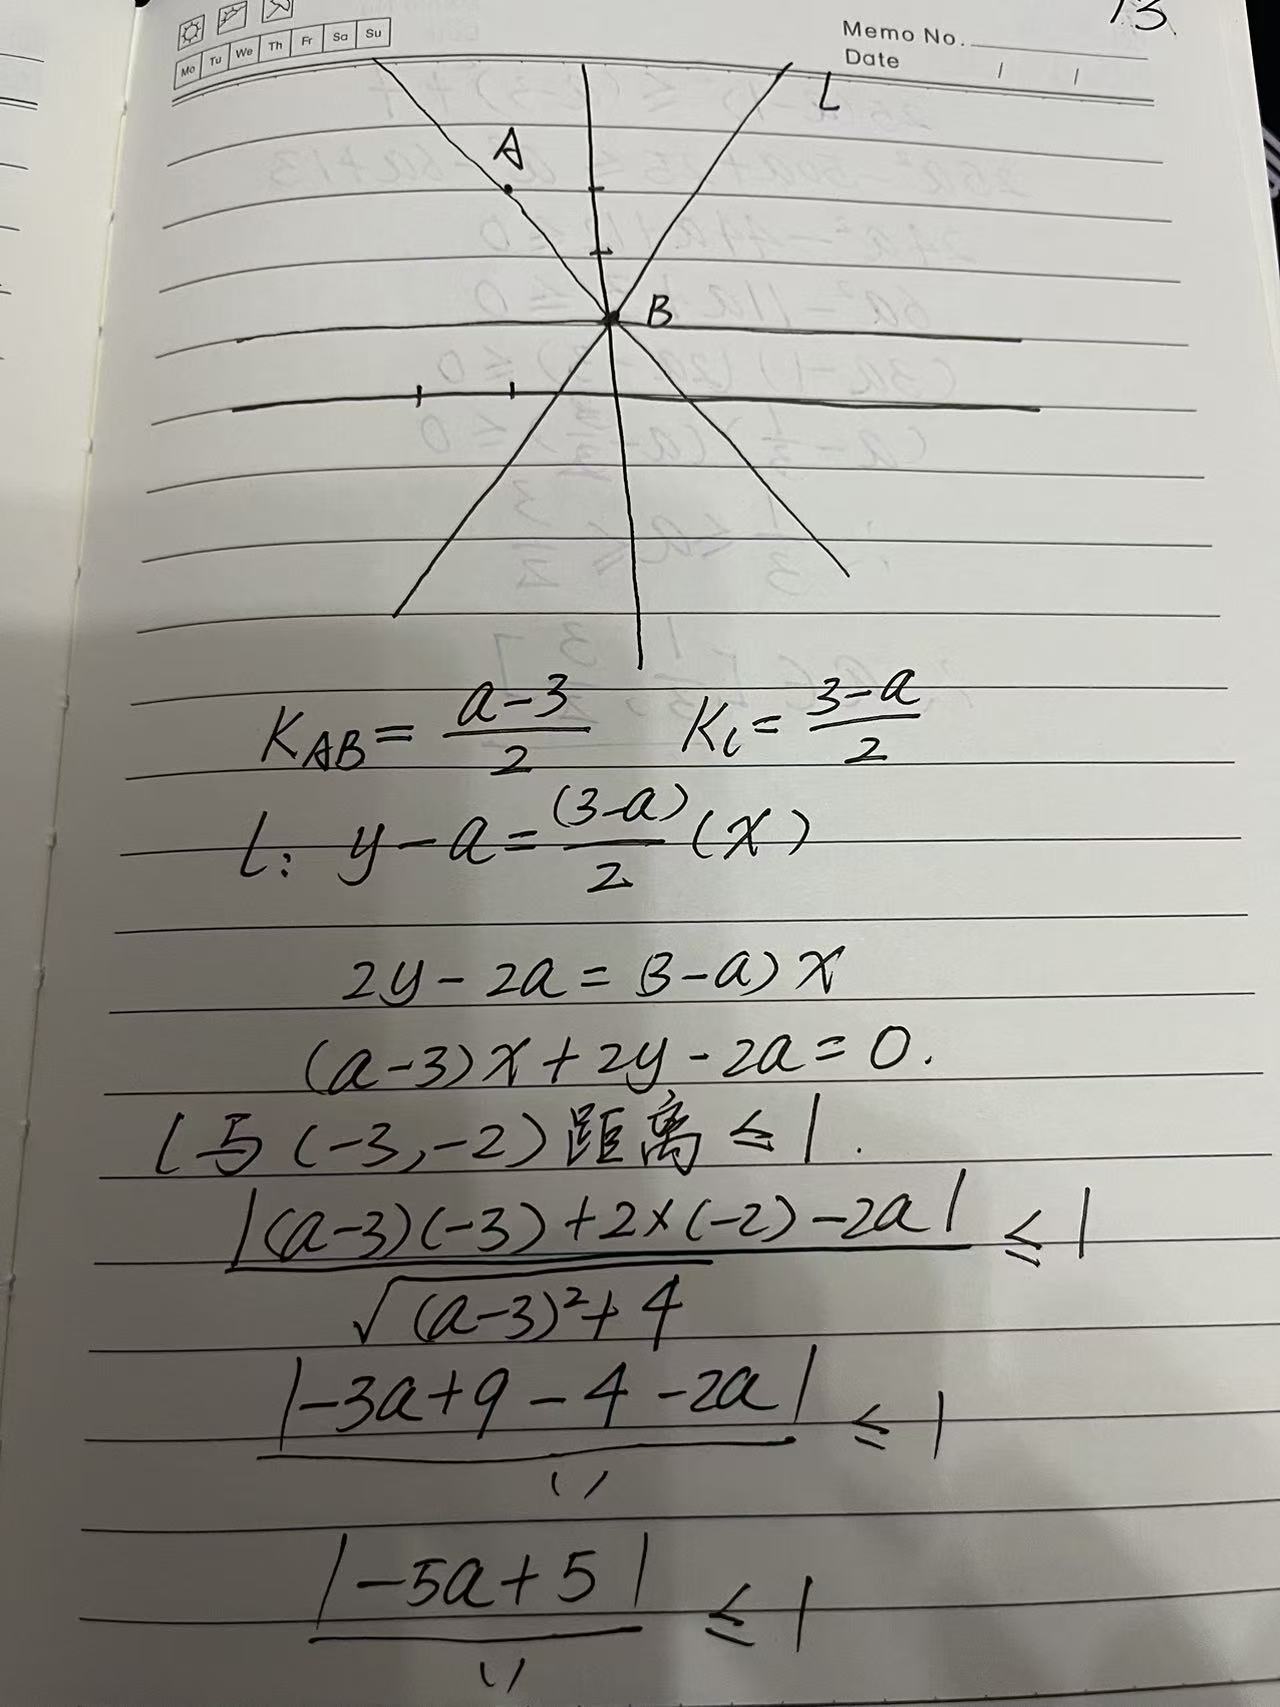 13
Memo No.
Date / /
Mo Tu We Th Fr Sa Su
L
A
B
K_{AB} = \frac{a-3}{2} K_l = \frac{3-a}{2}
l: y-a = \frac{(3-a)}{2}(x)
2y-2a = 3-a)x
(a-3)x+2y-2a=0.
l与(-3,-2)距离≤1.
\frac{|(a-3)(-3)+2×(-2)-2a|}{\sqrt{(a-3)^2+4}} ≤ 1
\frac{|-3a+9-4-2a|}{〃} ≤ 1
\frac{|-5a+5|}{〃} ≤ 1